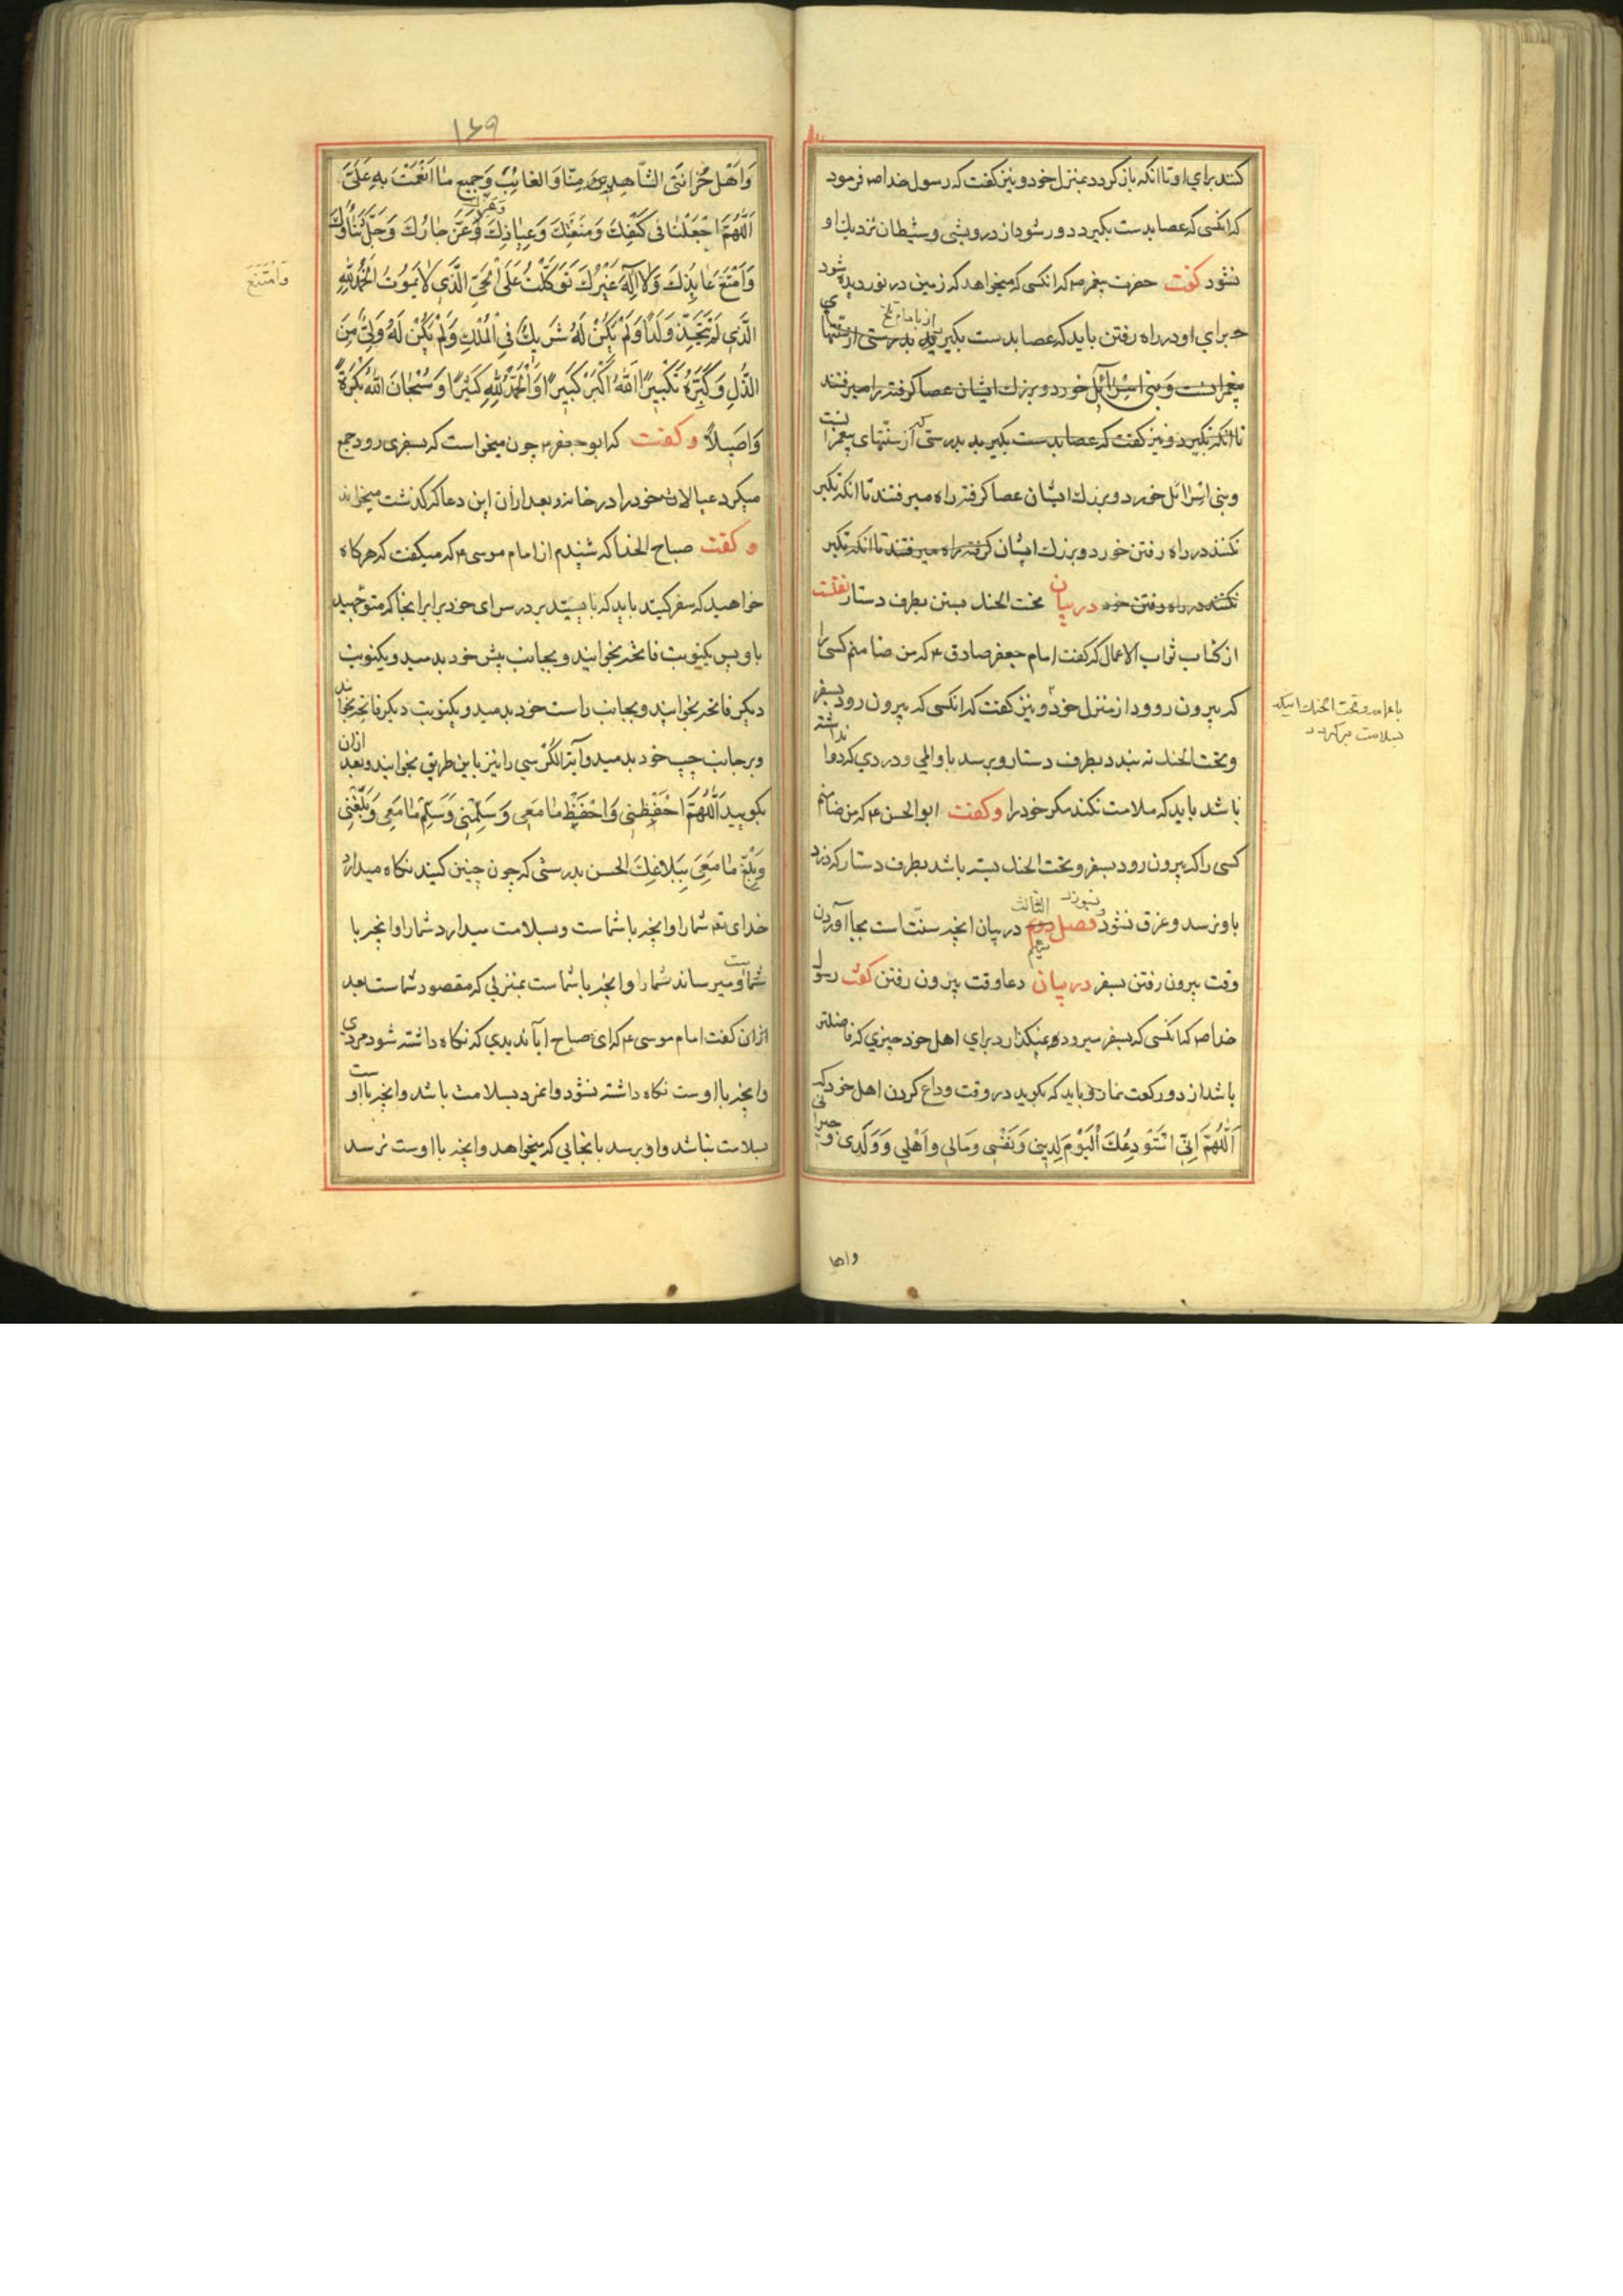 کنند برای او تا انکه باز کردد بمنزل خود و نیز کفت که رسول خدا صم فرمود
که انکسی که عصا بدست بکیرد دور شود از درویشی و شیطان نزدیك او
نشود کفت حضرت پیغمبر صم که انکسی که میخواهد که زمین در نوردیده شود
برای او در راه رفتن باید که عصا بدست بکیرید بدرستی از سنتهای
پیغمبرانست و بنی اسرائیل خورد و بزرك ایشان عصا کرفته راه میرفتند
تا انکه تکبر و نیز کفت که عصا بدست بکیرید بدرستی که از سنتهای پیغمبرانست
و بنی اسرائیل خورد و بزرك ایشان عصا کرفته راه میرفتند تا انکه تکبر
نکنند در راه رفتن خورد و بزرك ایشان کرفته راه میرفتند تا انکه تکبر
نکنند در راه رفتن خود در بیان تحت الحنك بستن بطرف دستار نقلست
از کتاب ثواب الاعمال که کفت امام جعفر صادق ع که من ضامنم کسی را
که بیرون رود از منزل خود و نیز کفت که انکسی که بیرون رود بسفر
و تحت الحنك نه بندد بطرف دستار و برسد باو المی و دردی که دوا نداشته
باشد باید که ملامت نکند مکر خود را و کفت ابو الحسن ع که من ضامنم
کسی را که بیرون رود بسفر و تحت الحنك بسته باشد بطرف دستار که دزد
باو نرسد و غرق نشود و نسوزد فصل الثالث دوم در بیان انچه سنت است بجا آوردن
وقت بیرون رفتن بسفر در بیان دعا وقت بیرون رفتن کفت رسول
خدا صم که انکسی که بسفر میرود نمیکذارد برای اهل خود چیزی که فاضلتر
باشد از دو رکعت نماز و باید که بکوید در وقت وداع کردن اهل خود که
اَللّهُمَّ اِنّی اَسْتَوْدِعُكَ اَلْیَوْمَ لِدینی وَنَفْسی وَمالی وَاَهْلی وَوَلَدی وَجیرانی
با عمامه و تحت الحنك اینکه
بسلامت برکردد
واها
۱۶۹
وَاَهْلَ حُزانَتی الشّاهِدینَ مِنّا وَالغائِبَ وَجَمیعَ ما اَنْعَمْتَ بِهِ عَلَیَّ
اَللّهُمَّ اجْعَلْنا فی کَنَفِكَ وَمَنْعَتِكَ وَعِیاذِكَ وَعِزِّكَ عَزَّ جارُكَ وَجَلَّ ثَناؤُكَ
وَامْتَنَعَ عائِذُكَ وَلا اِلهَ غَیْرُكَ تَوَکَّلْتُ عَلَی الْحَیِّ الَّذی لا یَمُوتُ اَلْحَمْدُ لِلّهِ
الَّذی لَمْ یَتَّخِذْ وَلَدًا وَلَمْ یَکُنْ لَهُ شَریكٌ فِی الْمُلْكِ وَلَمْ یَکُنْ لَهُ وَلِیٌّ مِنَ
الذُّلِّ وَکَبِّرْهُ تَکْبیرًا اَللّهُ اَکْبَرُ کَبیرًا وَالْحَمْدُ لِلّهِ کَثیرًا وَسُبْحانَ اللّهِ بُکْرَةً
وَاَصیلاً و کفت که ابو جعفر ع چون میخواست که بسفری رود جمع
میکرد عیالان خود را در خانه و بعد ازان این دعا که کذشت میخواند
و کفت صباح الحذا که شنیدم از امام موسی ع که میکفت که هرکاه
خواهید که سفر کنید باید که بایستید بر در سرای خود برابر انجا که متوجهید
باو پس یکنوبت فاتحه بخوانید و بجانب پیش خود بدمید و یکنوبت
دیکر فاتحه بخوانید و بجانب راست خود بدمید و یکنوبت دیکر فاتحه بخوانید
و بر جانب چپ خود بدمید و آیة الکرسی را نیز باین طریق بخوانید و بعد ازان
بکویید اَللّهُمَّ احْفَظْنی وَاحْفَظْ ما مَعی وَسَلِّمْنی وَسَلِّمْ ما مَعی وَبَلِّغْنی
وَبَلِّغْ ما مَعَی بِبَلاغِكَ الحسن بدرستی که چون چنین کنید نکاه میدارد
خدای تع شما را و انچه با شماست و بسلامت میدارد شما را و انچه با
شماست و میرساند شما را و انچه با شماست بمنزلی که مقصود شماست بعد
ازان کفت امام موسی ع که ای صباح ایا ندیدی که نکاه داشته شود مردی
و انچه با اوست نکاه داشته نشود و انمرد بسلامت باشد و انچه با اوست
بسلامت نباشد و او برسد بانجایی که میخواهد و انچه با اوست نرسد
وَامْتَنَعَ